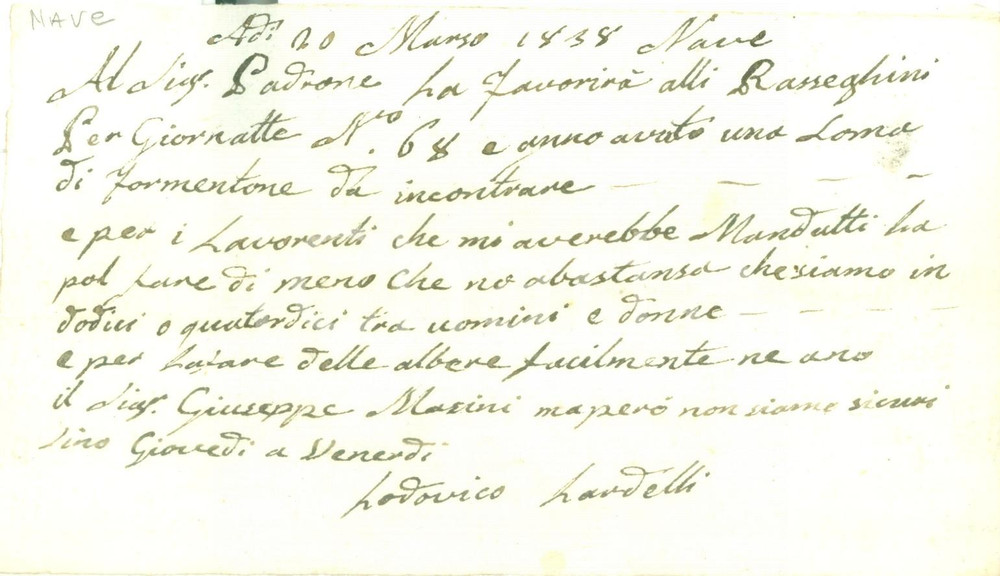 NAVE
Adi 20 Marso 1838 Nave
Al Sigr. Padrone ha favorirà alli Rasseghini
Per Giornatte No. 68 e anno avuto una Soma
di formentone da incontrare —  —  —  —
e per i Lavorenti che mi averebbe Mandatti ha
pol fare di meno Che no abastansa che siamo in
dodici o quatordici tra uomini e donne —  —  —
e per delle albere facilmente ne ano
il Sigr. Giuseppe Masini ma però non siamo sicuri
sino Giovedi a Venerdi
Lodovico Lardelli